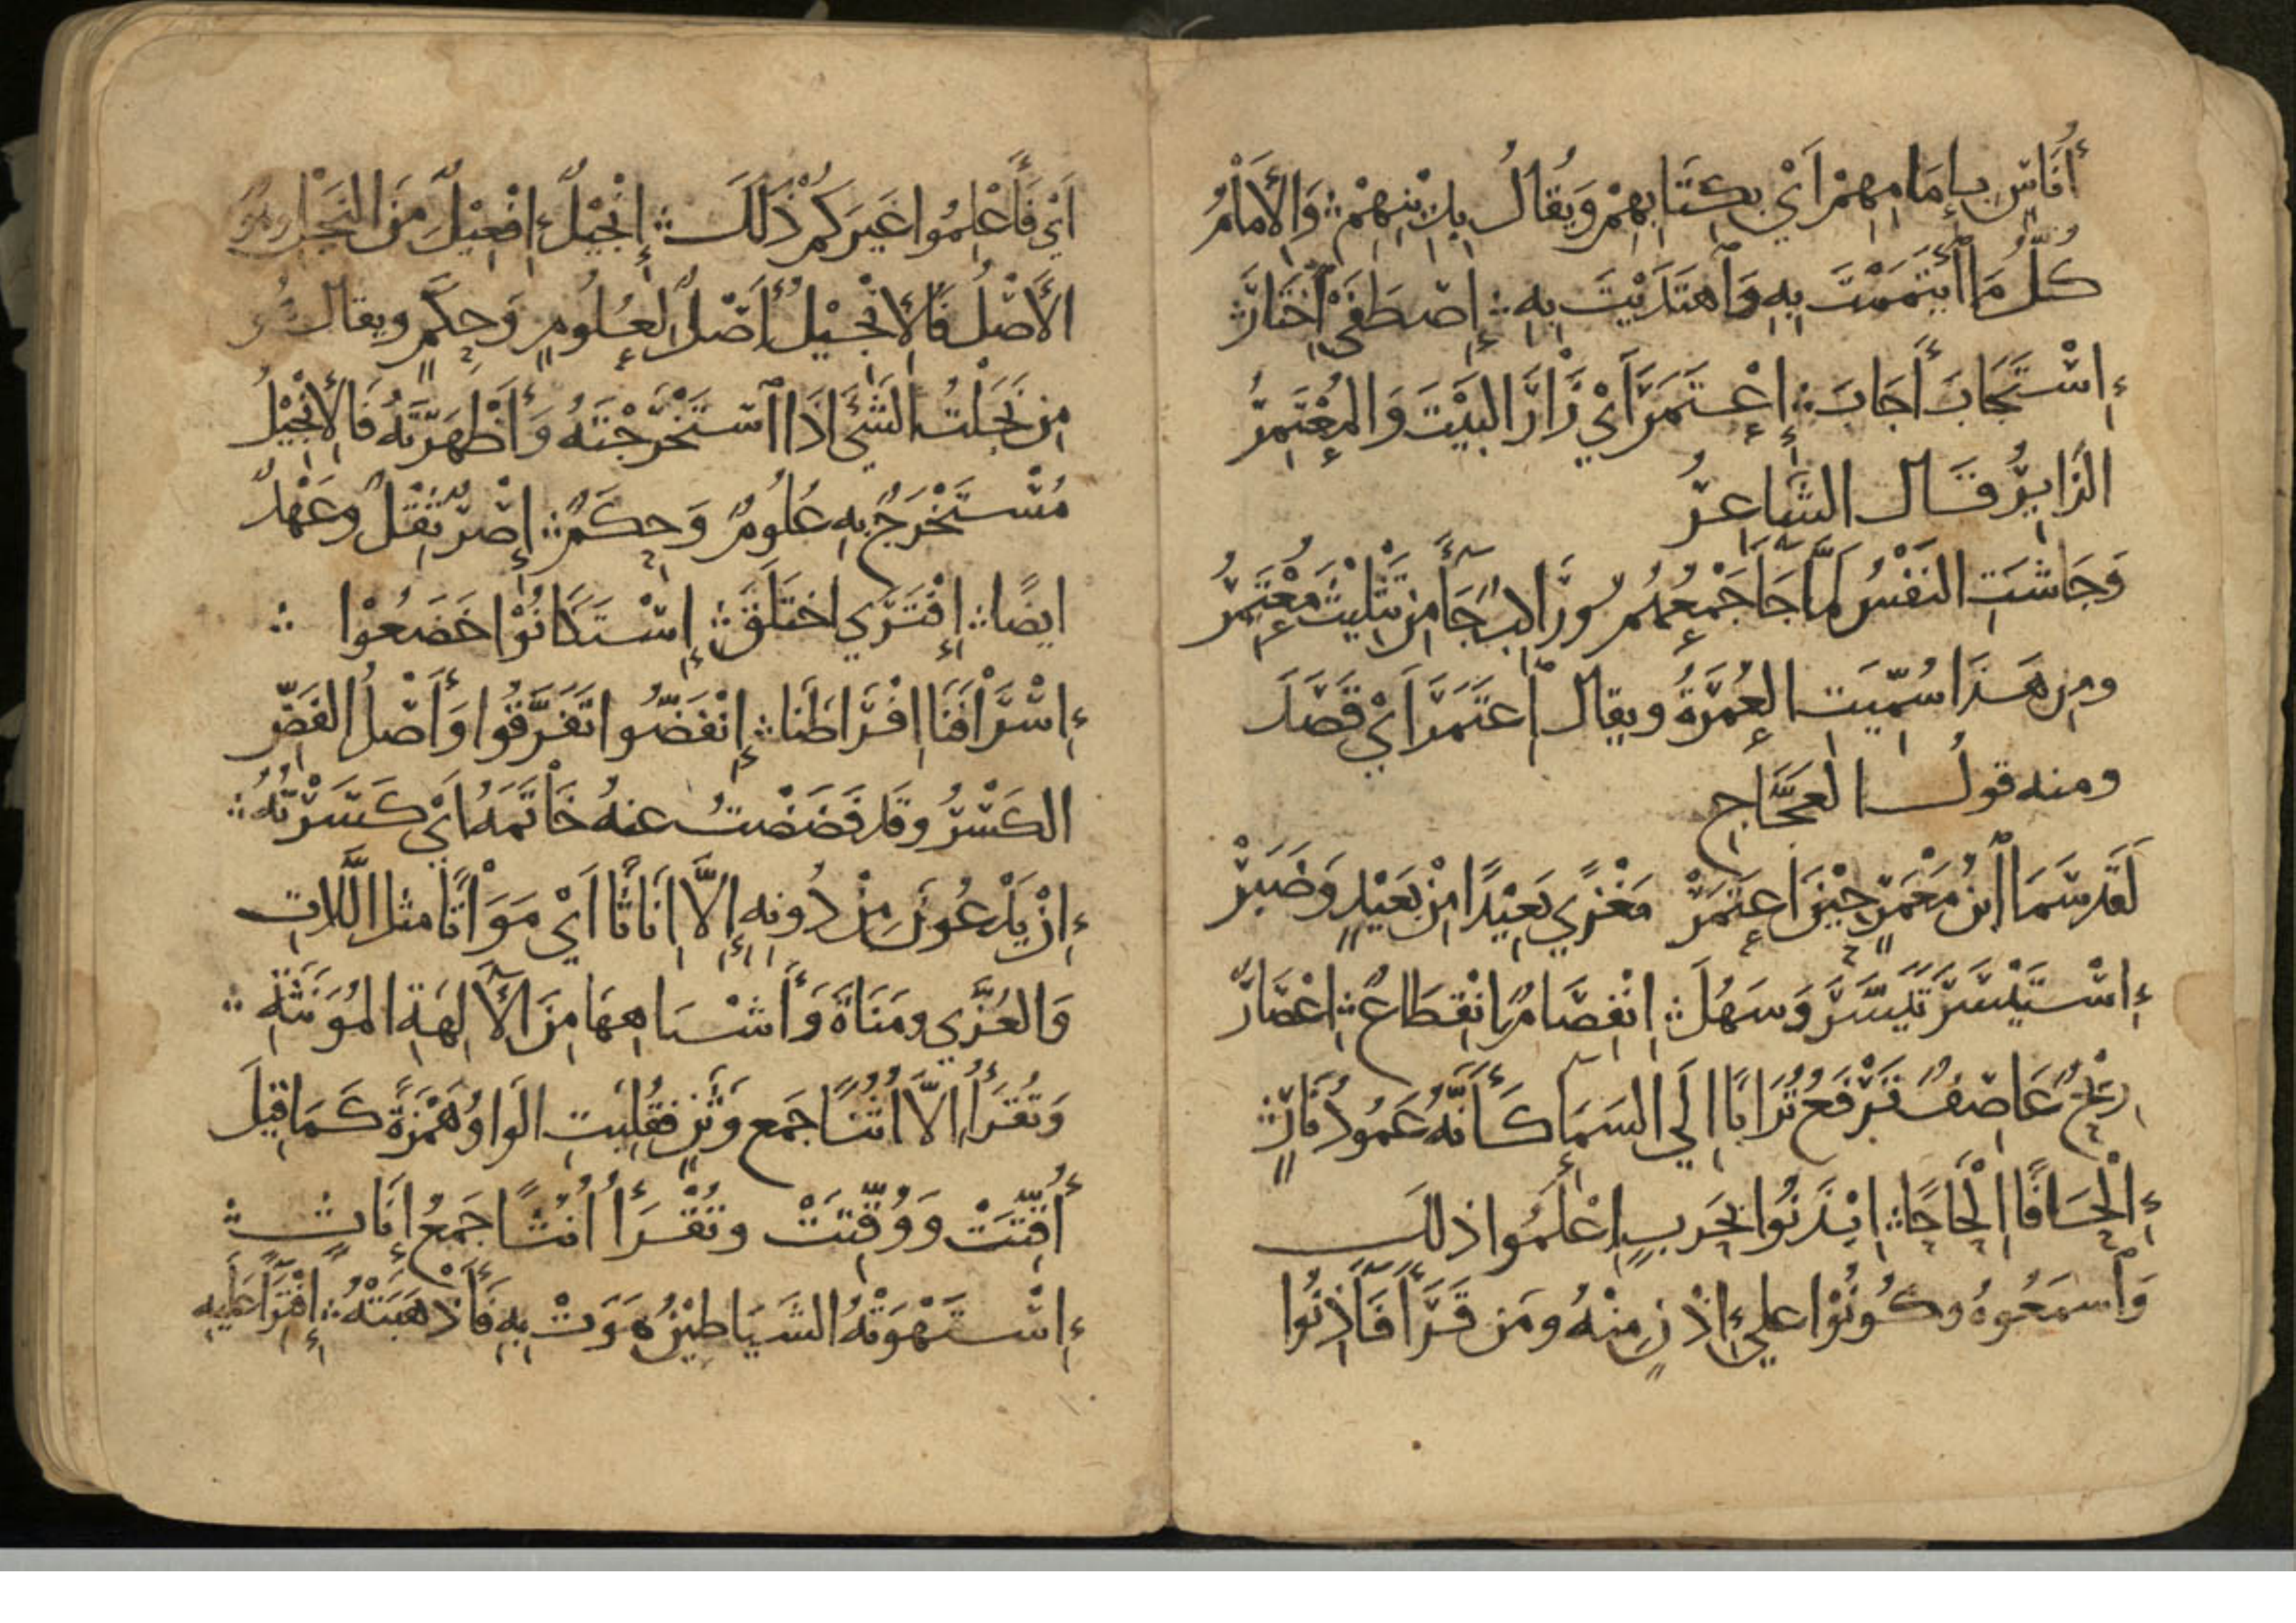 أُنَاسٍ بِإِمَامِهِمْ أَيْ بِكِتَابِهِمْ وَيُقَالُ بِدِيْنِهِمْ ؞ وَالإِمَامُ
كُلُّ مَا ائْتَمَمْتَ بِهِ وَاهْتَدَيْتَ بِهِ ؞ إِصْطَفَى اخْتَارَ ؞
إِسْتَجَابَ أَجَابَ ؞ إِعْتَمَرَ أَيْ زَارَ البَيْتَ وَالمُعْتَمِرُ
الزَايِرُ قَالَ الشَاعِرُ
وَجَاشَتِ النَفْسُ لَمَّا جَا جَمْعُهُمُ وَرَاكِبٌ جَآءَ مِنْ تَثْلِيْثَ مُعْتَمِرُ
وَمِنْ هَذَا سُمِّيَتِ العُمْرَةُ ويقال اعْتَمَرَ أَيْ قَصَدَ
ومنه قولُ العَجَّاجِ
لَقَدْ سَمَا ابْنُ مَعْمَرٍ حِيْنَ اعْتَمَرْ مَغْزًي بَعِيْدًا مِنْ بَعِيْدٍ وَضَبَرْ
إِسْتَيْسَرَ تَيَسَّرَ وَسَهُلَ ؞ انْفِصَامٌ انْقِطَاعٌ ؞ إِعْصَارٌ
رِيْحٌ عَاصِفٌ تَرْفَعُ تُرَابًا إِلَي السَمَآ كَأَنَّهُ عَمُودُ نَارٍ ؞
إِلْحَافًا إِلْحَاحًا ؞ ايْذَنُوا بِحَرْبٍ إِعْلَمُوا ذلكَ
وَاسْمَعُوهُ وكُونُوْا علي إِذْنٍ مِنْهُ ومَن قَرَأَ فَآذِنُوا
أَيْ فَأَعْلِمُوا غَيَرَكُمْ ذَلَكَ ؞ إِنْجِيْلٌ إِفْعِيْلٌ مِنَ النَجْلِ وهُوَ
الأَصْلُ فَالإِنْجِيْلُ أَصْلٌ لِعُلُومٍ وَحِكَمٍ ويقال هُوَ
مِن نَجَلْتُ الشَيَ إِذَا اسْتَخْرَجْتَهُ وَأَظْهَرْتَهُ فَالإِنْجِيْلُ
مُسْتَخْرَجٌ بِهِ عُلُومٌ وَحِكَمٌ ؞ إِصْرٌ ثِقْلٌ وعَهْدٌ
ايضًا ؞ إِفْتَرَي اخْتَلَقَ ؞ إِسْتَكَانُوْا خَضَعُوْا ؞
إِسْرَافَنَا إِفْرَاطَنَا ؞ إِنْفَضُّوا تَفَرَّقُوا وَأَصْلُ الفَضِّ
الكَسْرُ وقد فَضَضْتُ عنهُ خَاتَمَهُ أَيْ كَسَرْتُهُ ؞
إِنْ يَدْعُونَ مِنْ دُونِهِ إِلَّا إِنَاثًا أَيْ مَوَاتًا مثل اللَّاتِ
وَالعُزَّي ومَنَاةَ وَأَشْبَاهِهَا مِنَ الآلِهَةِ المُوَنَّثَةِ ؞
وَتُقْرَأُ إِلاَّ أُثُنًا جَمع وَثَنٍ فقُلِبَتِ الوَاوُ هَمْزَةً كَمَا قِيْلَ
أُقِّتَتْ وَوُقِّتَتْ وتُقْرَأُ أُنُثًا جَمْعُ إِنَاثٍ ؞
إِسْتَهْوَتْهُ الشَيَاطِيْنُ هَوَتْ بِهِ فَأَذْهَبَتْهُ ؞ إِفْتِرَآءً عَلَيهِ